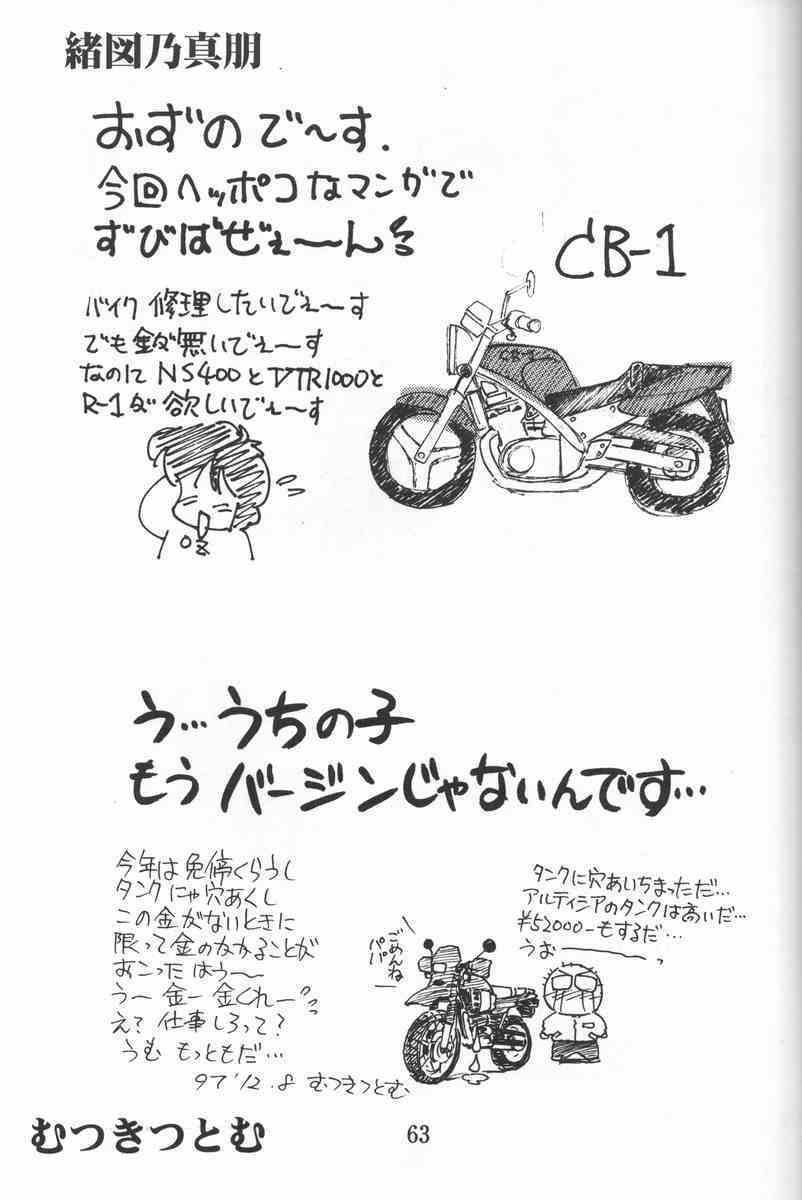 緒図乃真朋
おずので～す.
今回ヘッポコなマンガで
ずびばぜぇ～ん
CB-1
バイク修理したいでぇーす
でも金が無いでぇーす
なのにNS400とVTR1000と
R-1が欲しいでぇーす
CB-1
う…うちの子
もうバージンじゃないんです…
今年は免停くらうし
タンクにゃ穴あくし
この金がないときに
限って金のかかることが
おこった はうー
うー金ー金くれー
え?仕事しろって?
うむもっともだ…
97'12.8 むつきつとむ
ごめんね
パパ―
タンクに穴あいちまっただ…
アルティシアのタンクは高いだ…
¥52000-もするだ…
うおーっ
むつきつとむ
63